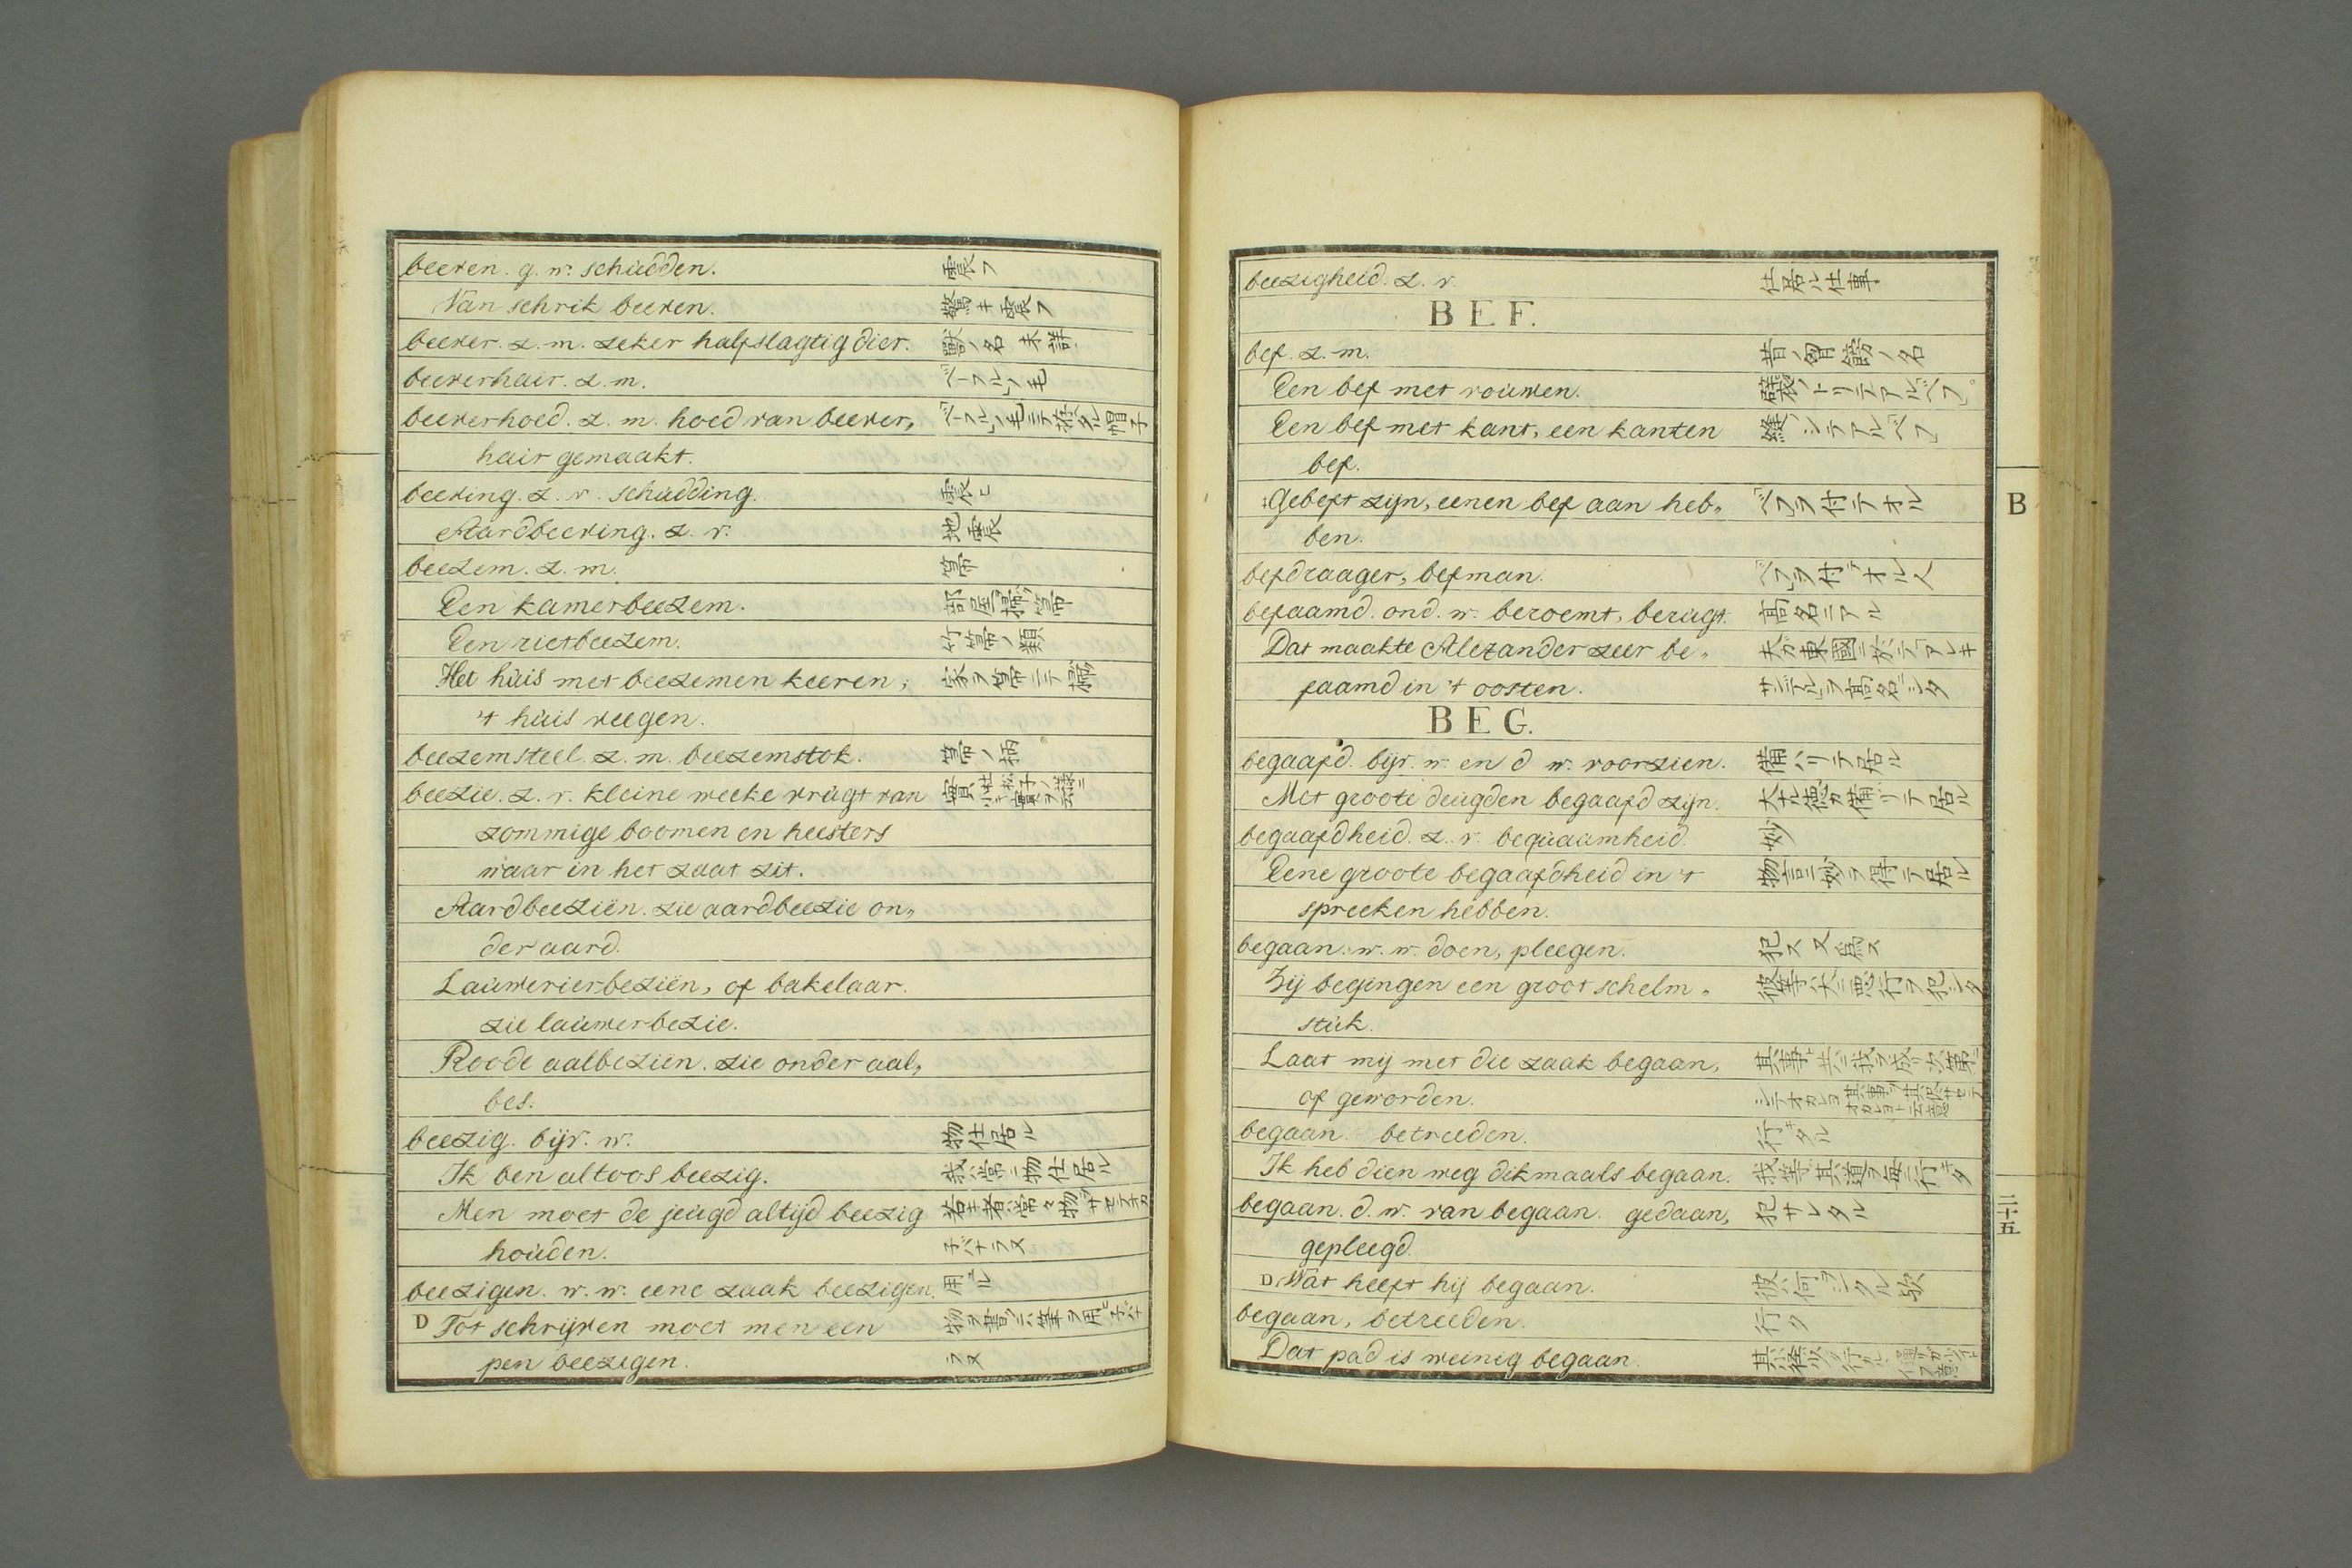 beeven. g. w. schudden. 震フ
Van schrik beeven. 驚キ震フ
beever. z. m. zeker halfslagtig dier. 獸ノ名未詳
beeverhair. z. m. ベーフルノ毛
beeverhoed. z. m. hoed van beever„ ベーフルノ毛ニテ拵タル帽子
hair gemaakt.
beeving. z. v. schudding. 震ヒ
Aardbeeving. z. v. 地震
beezem. z. m. 箒
Een kamerbeezem. 部屋掃ク箒
Een rietbeezem. 竹箒ノ類
Het huis met beezemen keeren, 家ヲ箒ニテ掃
't huis veegen.
beezemsteel. z. m. beezemstok. 箒ノ柄
beezie. z. v. kleine weeke vrugt van 實
zommige boomen en heesters
waar in het zaat zit.
Aardbeeziën. zie aardbeezie on„
der aard.
Lauwerierbeziën, of bakelaar.
zie lauwerbezie.
Roode aalbeziën. zie onder aal„
bes.
beezig. bijv. w. 物仕居ル
Ik ben altoos beezig. 我ハ常ニ物仕居ル
Men moet de jeugd altijd beezig 若キ者ハ常々物サセテオカ
houden.子バナラヌ
beezigen. w. w. eene zaak beezigen. 用ル
D Tot schrijven moet men een 物ヲ書クニハ筆ヲ用ヒ子バナ
pen beezigen. ラヌ
beezigheid. z. v. 仕居ル仕事
B E F.
bef. z. m. 昔ノ胸飾ノ名
Een bef met vouwen. 襞ノトリテアルベフ
Een bef met kant, een kanten 縫シテアルベフ
bef.
Gebeft zijn, eenen bef aan heb„ ベフヲ付テオル
ben.
befdraager, befman. ベフヲ付テオル人
befaamd. ond. w. beroemt, berugt. 高名ニアル
Dat maakte Alexander zeer be„ 夫ガ東國ニ於テアレキ
faamd in 't oosten. サンデルヲ高名ニシタ
B E G.
begaafd. bijv. w. en d w. voorzien. 備ハリテ居ル
Met groote deugden begaafd zijn. 大ナル徳ガ備リテ居ル
begaafdheid. z. v. bequaamheid. 妙
Eene groote begaafdheid in 't 物言ニ妙ヲ得テ居ル
spreeken hebben.
begaan. w. w. doen, pleegen. 犯ス又爲ス
Zij begingen een groot schelm„ 彼等ハ大ニ悪行ヲ犯シタ
stuk.
Laat mij met die zaak begaan, 其事ト共ニ我ヲ成リ次第ニ
of geworden. シテオカレヨ
begaan. betreeden. 行キタル
Ik heb dien weg dikmaals begaan. 我等其道ヲ毎ニ行キタ
begaan. d. w. van begaan. gedaan, 犯サレタル
gepleegd.
D Wat heeft hij begaan. 彼ハ何ヲシタル歟
begaan, betreeden. 行ク
Dat pad is weinig begaan. 其小徑ハ少ク行ル
B
二十五